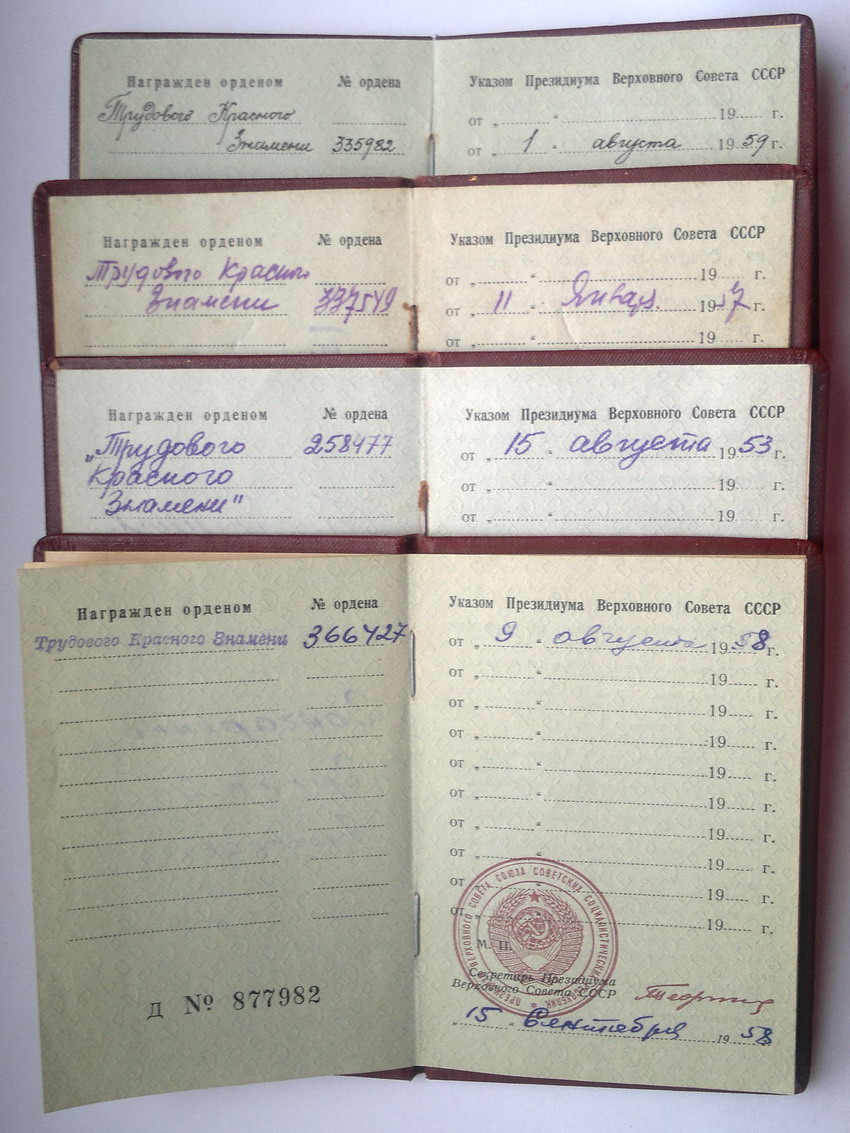 Награжден орденом № ордена
Трудового Красного
Знамени 335982
Указом Президиума Верховного Совета СССР
от „ “ 19 г.
от „ 1 “ августа 1959 г.
Награжден орденом № ордена
Трудового Красного
Знамени 337549
Указом Президиума Верховного Совета СССР
от „ “ 19 г.
от „ 11 “ Января 1957 г.
от „ “ 19 г.
Награжден орденом № ордена
„Трудового 258477
Красного
Знамени"
Указом Президиума Верховного Совета СССР
от „ 15 “ августа 1953 г.
от „ “ 19 г.
от „ “ 19 г.
Награжден орденом № ордена
Трудового Красного Знамени 366427
Д № 877982
Указом Президиума Верховного Совета СССР
от „ 9 “ августа 1958 г.
от „ “ 19 г.
от „ “ 19 г.
от „ “ 19 г.
от „ “ 19 г.
от „ “ 19 г.
от „ “ 19 г.
от „ “ 19 г.
от „ “ 19 г.
от „ “ 19 г.
ПРЕЗИДИУМ ВЕРХОВНОГО СОВЕТА СОЮЗА СОВЕТСКИХ СОЦИАЛИСТИЧЕСКИХ РЕСПУБЛИК
М. П.
Секретарь Президиума
Верховного Совета СССР
„15 “ Сентября 1958